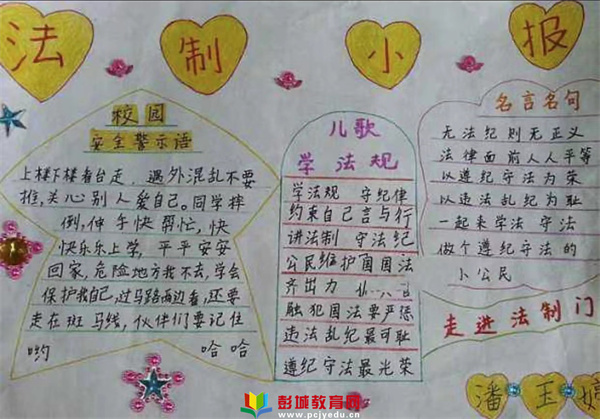 法制小报
校园
安全警示语
上楼下楼看台走，遇外混乱不要
推，关心别人爱自己。同学摔
倒，伸手快帮忙，快
快乐乐上学，平平安安
回家，危险地方我不去，学会
保护我自己，过马路两边看，还要
走在斑马线，伙伴们要记住
哟 哈哈
儿歌
学法规
学法规 守纪律
约束自己言与行
讲法制 守法纪
公民维护国国法
齐出力
触犯国法要严惩
违法乱纪最可耻
遵纪守法最光荣
名言名句
无法纪则无正义
法律面前人人平等
以遵纪守法为荣
以违法乱纪为耻
一起来学法 守法
做个遵纪守法的
小公民
走进法制门
潘玉婷
彭城教育网
www.pcjyedu.cn